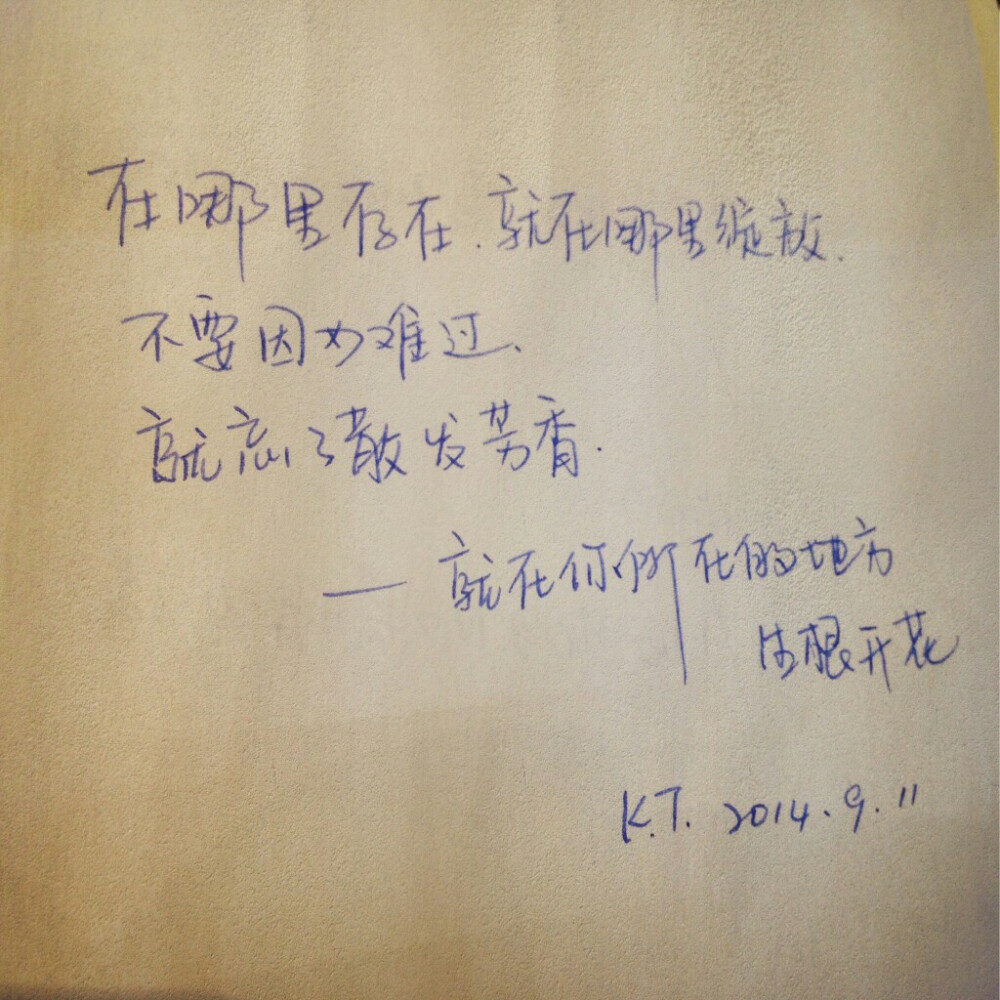 在哪里存在.就在哪里绽放.
不要因为难过、
就忘了散发芳香.
— 就在你所在的地方
生根开花
K.T. 2014.9.11